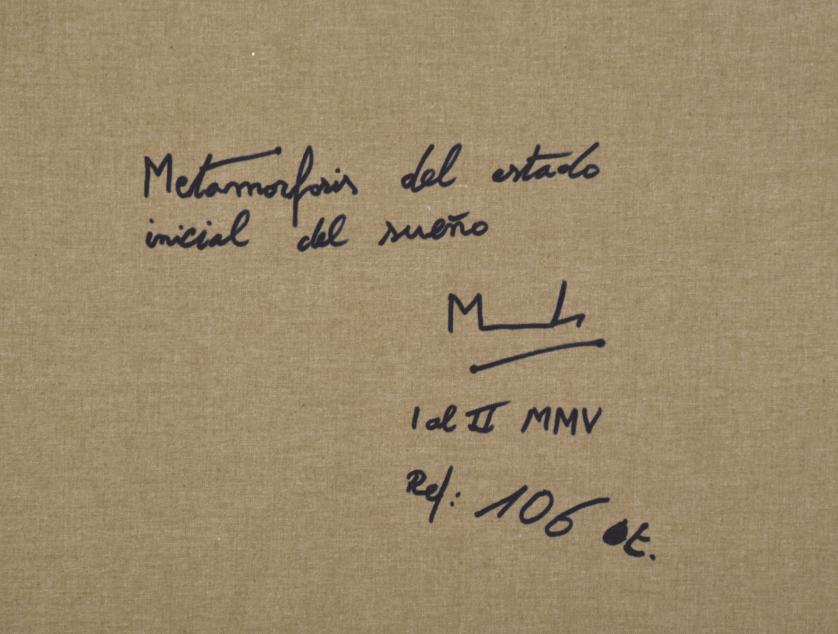 Metamorfosis del estado
inicial del sueño
M L
I al II MMV
Ref: 106 t.